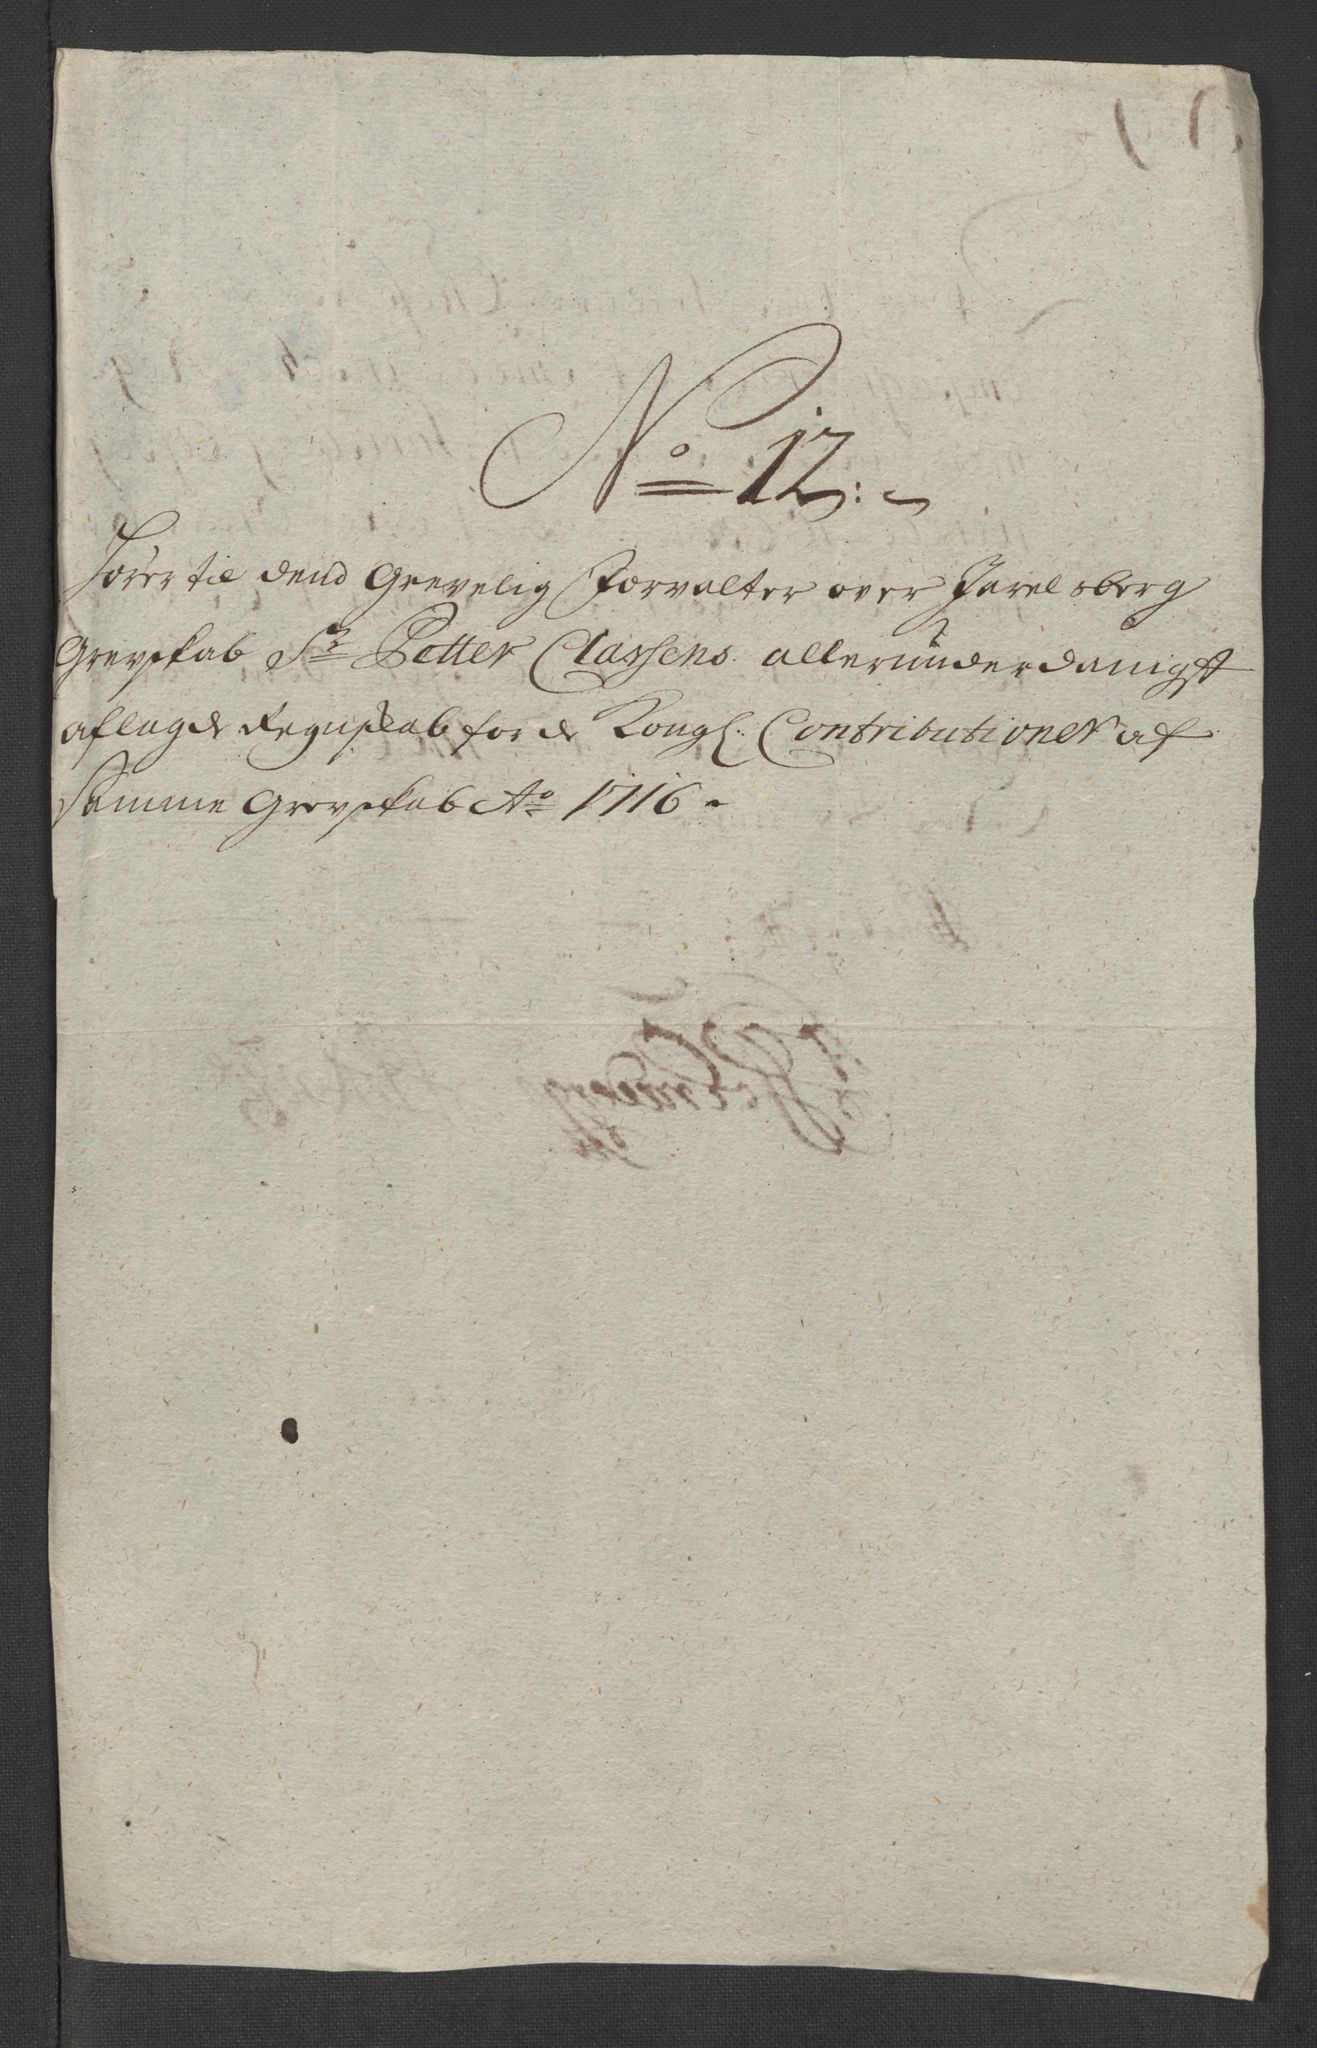 No 12:
Hører til dend Grevelig Forvalter over Jarelsberg
Grevskab Sr Petter Classens allerunderdanigst
aflagde Regnskab for de Kongl: Contributioner af
Samme Grevskab Ao 1716